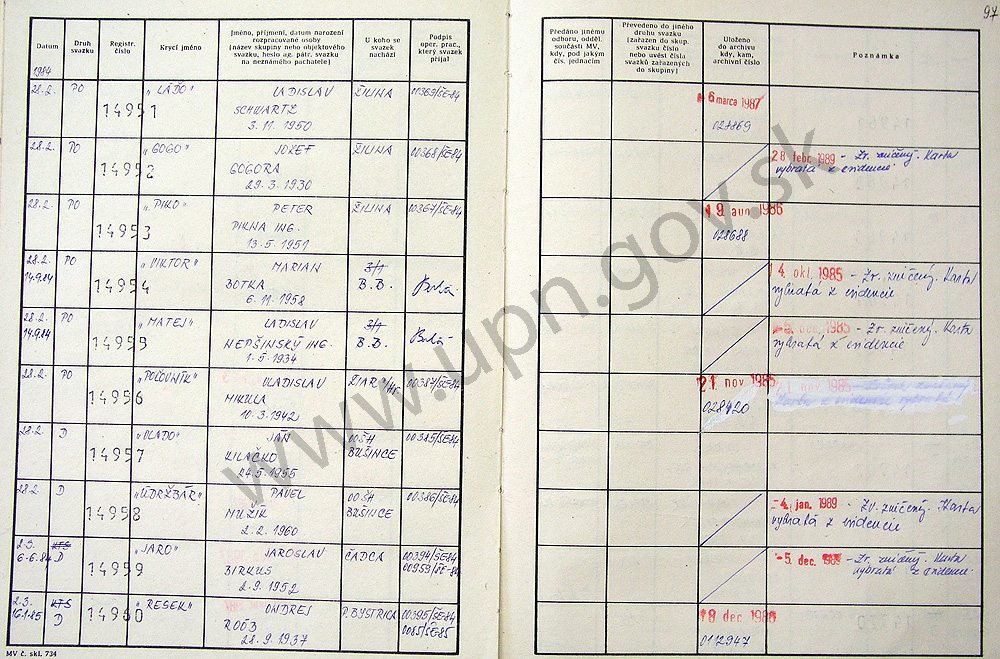 97
Datum
Druh svazku
Registr. číslo
Krycí jméno
Jméno, příjmení, datum narození
rozpracované osoby
(název skupiny nebo objektového
svazku, heslo ag. pátr. svazku
na neznámého pachatele)
U koho se
svazek
nachází
Podpis
oper. prac.,
který svazek
přijal
Předáno jinému
odboru, odděl.
součásti MV,
kdy, pod jakým
čís. jednacím
Převedeno do jiného
druhu svazku
(zařazen do skup.
svazku číslo
nebo uvést čísla
svazků zařazených
do skupiny)
Uloženo
do archivu
kdy, kam,
archivní číslo
Poznámka
1984
28.2. PO 14951 "LÁĎO" LADISLAV ŽILINA 00369/ŠE-84 6 marca 1987
SCHWARTZ
3. 11. 1950 028869
28.2. PO 14952 "GOGO" JOZEF ŽILINA 00368/ŠE-84 28 febr. 1989 - Zv. zničený. Karta
GOGORA vybratá z evidencie
29. 3. 1930
28.2. PO 14953 "PIKO" PETER ŽILINA 00367/ŠE-84 19. aug. 1986
PIKNA ING. 028688
13. 5. 1951
28.2. PO 14954 "VIKTOR" MARIAN 3/1 14. okt. 1985 - Zv. zničený. Karta
14.9.84 BOTKA B.B. vybratá z evidencie
6. 11. 1958
28.2. PO 14955 "MATEJ" LADISLAV 3/1 1985 - Zv. zničený. Karta
14.9.84 NEPŠINSKÝ ING. B.B. vybratá z evidencie
1. 5. 1934
28.2. PO 14956 "POĽOVNÍK" VLADISLAV ŽIAR n/Hr. 00387/ŠE-84 21 nov 1985
MIKULA 028420
10. 3. 1942
28.2. D 14957 "VLADO" JÁN OOŠH 00385/ŠE-84
KILAČKO BUŠINCE
24. 5. 1955
28.2. D 14958 "ÚDRŽBÁR" PAVEL OOŠH 00386/ŠE-84 -4. jan. 1989 - Zv. zničený. Karta
MUŽÍK BUŠINCE vybratá z evidencie
2. 2. 1960
2.3. KTS 14959 "JARO" JAROSLAV ČADCA 00394/ŠE-84 -5. dec. 1989 - Zv. zničený. Karta
6.6.84 D BIRKUS 00959/ŠE-84 vybratá z evidencie
2. 9. 1952
2.3. KTS 14960 "RESEK" ONDREJ P. BYSTRICA 00395/ŠE-84 18 dec 1986
16.1.85 D ROÓB 0065/ŠE-85 0112947
28. 9. 1937
MV č. skl. 734
www.upn.gov.sk